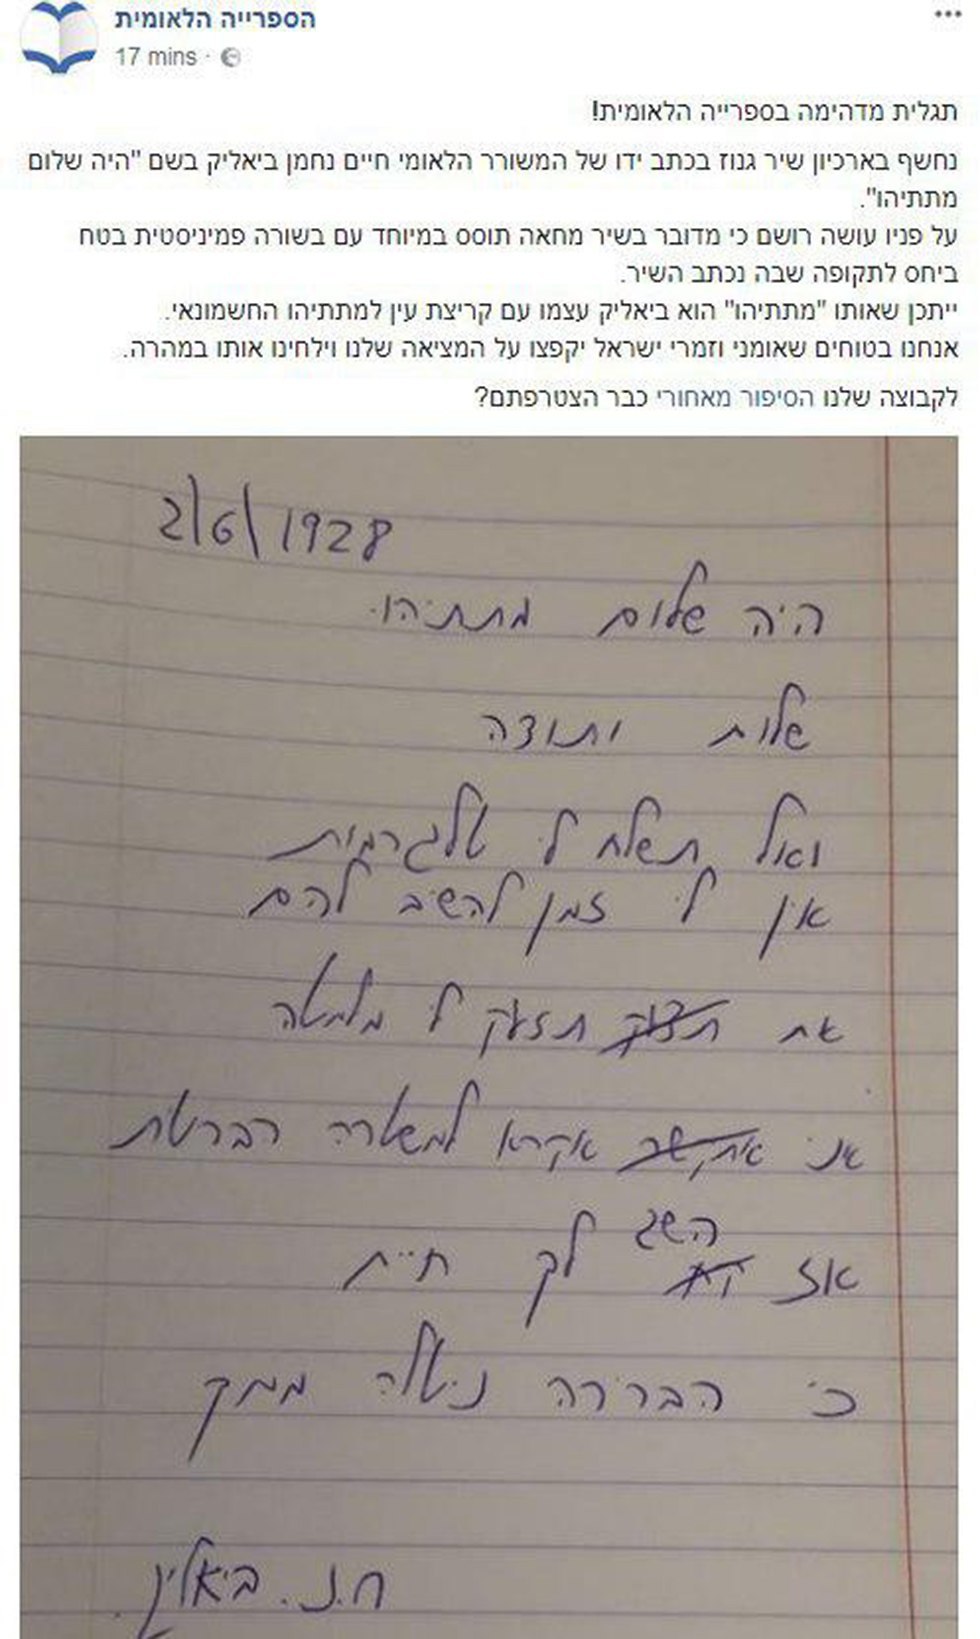 הספרייה הלאומית
17 mins ·
תגלית מדהימה בספרייה הלאומית!
נחשף בארכיון שיר גנוז בכתב ידו של המשורר הלאומי חיים נחמן ביאליק בשם "היה שלום
מתתיהו".
על פניו עושה רושם כי מדובר בשיר מחאה תוסס במיוחד עם בשורה פמיניסטית בטח
ביחס לתקופה שבה נכתב השיר.
ייתכן שאותו "מתתיהו" הוא ביאליק עצמו עם קריצת עין למתתיהו החשמונאי.
אנחנו בטוחים שאומני וזמרי ישראל יקפצו על המציאה שלנו וילחינו אותו במהרה.
לקבוצה שלנו הסיפור מאחורי כבר הצטרפתם?
2\6\1928
היה שלום מתתיהו
שלום ותודה
ואל תשלח לי טלגרמות
אין לי זמן להשיב להם
את תזעק לי מלמטה
אני אקרא למשטרה הבריטית
אז השג לך חיית
כי הברירה ניטלה ממך
ח.נ. ביאליק